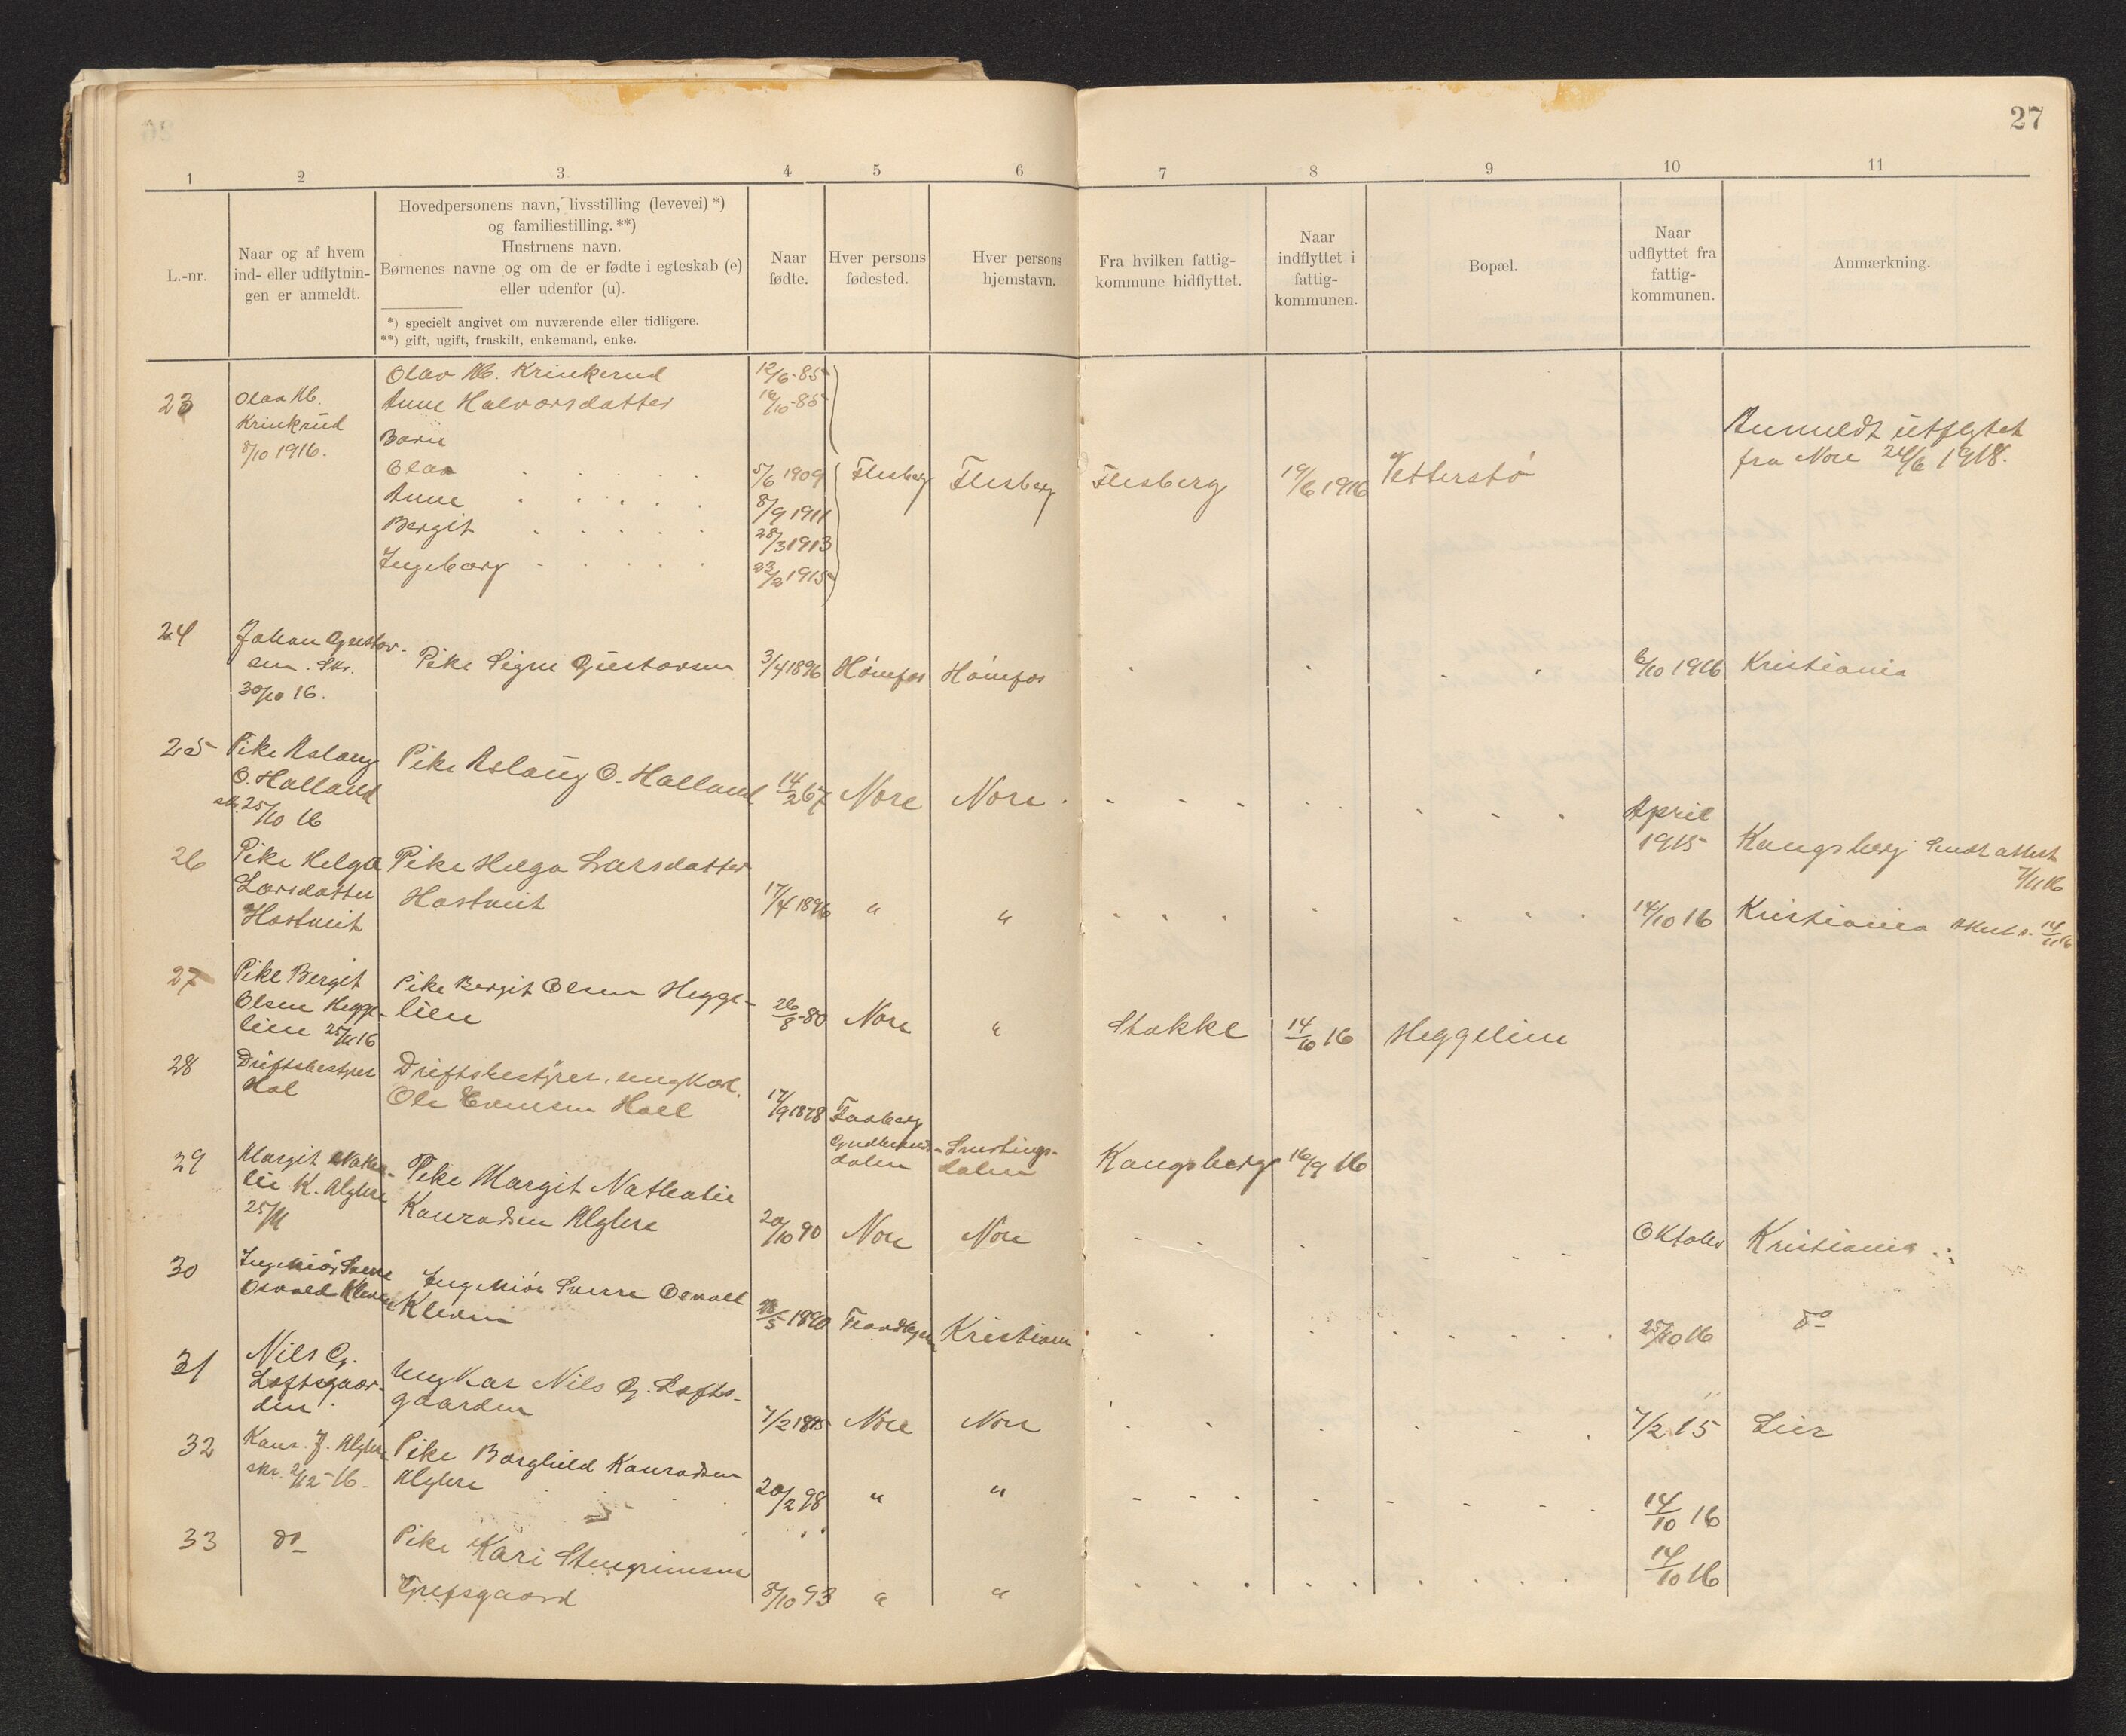 27
1 2 3 4 5 6 7 8 9 10 11
L.-nr.
Naar og af hvem
ind- eller udflytnin-
gen er anmeldt.
Hovedpersonens navn, livsstilling (levevei) *)
og familiestilling. **)
Hustruens navn.
Børnenes navne og om de er fødte i egteskab (e)
eller udenfor (u).
*) specielt angivet om nuværende eller tidligere.
**) gift, ugift, fraskilt, enkemand, enke.
Naar
fødte.
Hver persons
fødested.
Hver persons
hjemstavn.
Fra hvilken fattig-
kommune hidflyttet.
Naar
indflyttet i
fattig-
kommunen.
Bopæl.
Naar
udflyttet fra
fattig-
kommunen.
Anmærkning.
23
Olav
Krinkrud
8/10 1916.
Olav Krinkerud 12/6-85
Anne Halvorsdatter 16/10-85
Barn
Olav 5/6 1909
Anne 8/9 1911
Bergit 28/3 1913
Ingeborg 22/2 1915
Flesberg Flesberg Flesberg 19/6 1916 Vetterstø
Anmeldt utflytet
fra Nore 24/6 1918.
24
Johan Gustav-
sen. Skr.
30/10 16.
Pike Signe Gustavsen 3/4 1896 Hønefos Hønefos 6/10 1916 Kristiania
25
Pike Aslaug
O. Halland
25/10 16
Pike Aslaug O. Halland 14/2 67 Nore Nore
April
1915 Kongsberg Sendt attest
7/11 16
26
Pike Helga
Larsdatter
Hostveit
Pike Helga Larsdatter
Hostveit 17/4 1896 " " 14/10 16 Kristiania 14/11 16
27
Pike Bergit
Olsen Hegge-
lien 25/11 16
Pike Bergit Olsen Hegge-
lien 26/8-80 Nore " Stokke 14/10 16 Heggelien
28
Driftsbestyrer
Hol
Driftsbestyrer, ungkarl.
Ole Hoel 17/9 1878 Faaberg
Gudbrands-
dalen
dalen
Kongsberg 16/9 16
29
Margit
lie K. Alghre
25/11
Pike Margit Nathalie
Konradsen Alghre 20/10 90 Nore Nore Oktober Kristiania
30
Ingeniør Sverre
Osvald Kleven
Ingeniør Sverre Osvald
Kleven 1890 Trondhjem Kristiania 25/10 16 do
31
Nils G.
Loftsgaar-
den
Ungkar Nils G. Lofts-
gaarden 7/2 1895 Nore Nore 7/2 15 Lier
32
Konr. J. Alghre
skr. 2/12-16.
Pike Borghild Konradsen
Alghre 20/2 98 " " 14/10 16
33 do
Pike Kari Stengrimsen
Grefsgaard 8/10 93 " " 14/10 16